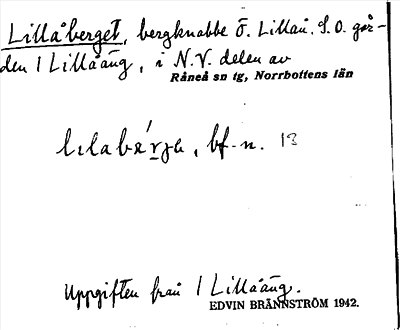 Lillåberget, bergknabbe Ö. Lillån. S.O. går-
den 1 Lillåäng, i N.V. delen av
Råneå sn tg, Norrbottens län
bf. n. 13
Uppgiften från 1 Lillåäng.
EDVIN BRÄNNSTRÖM 1942.